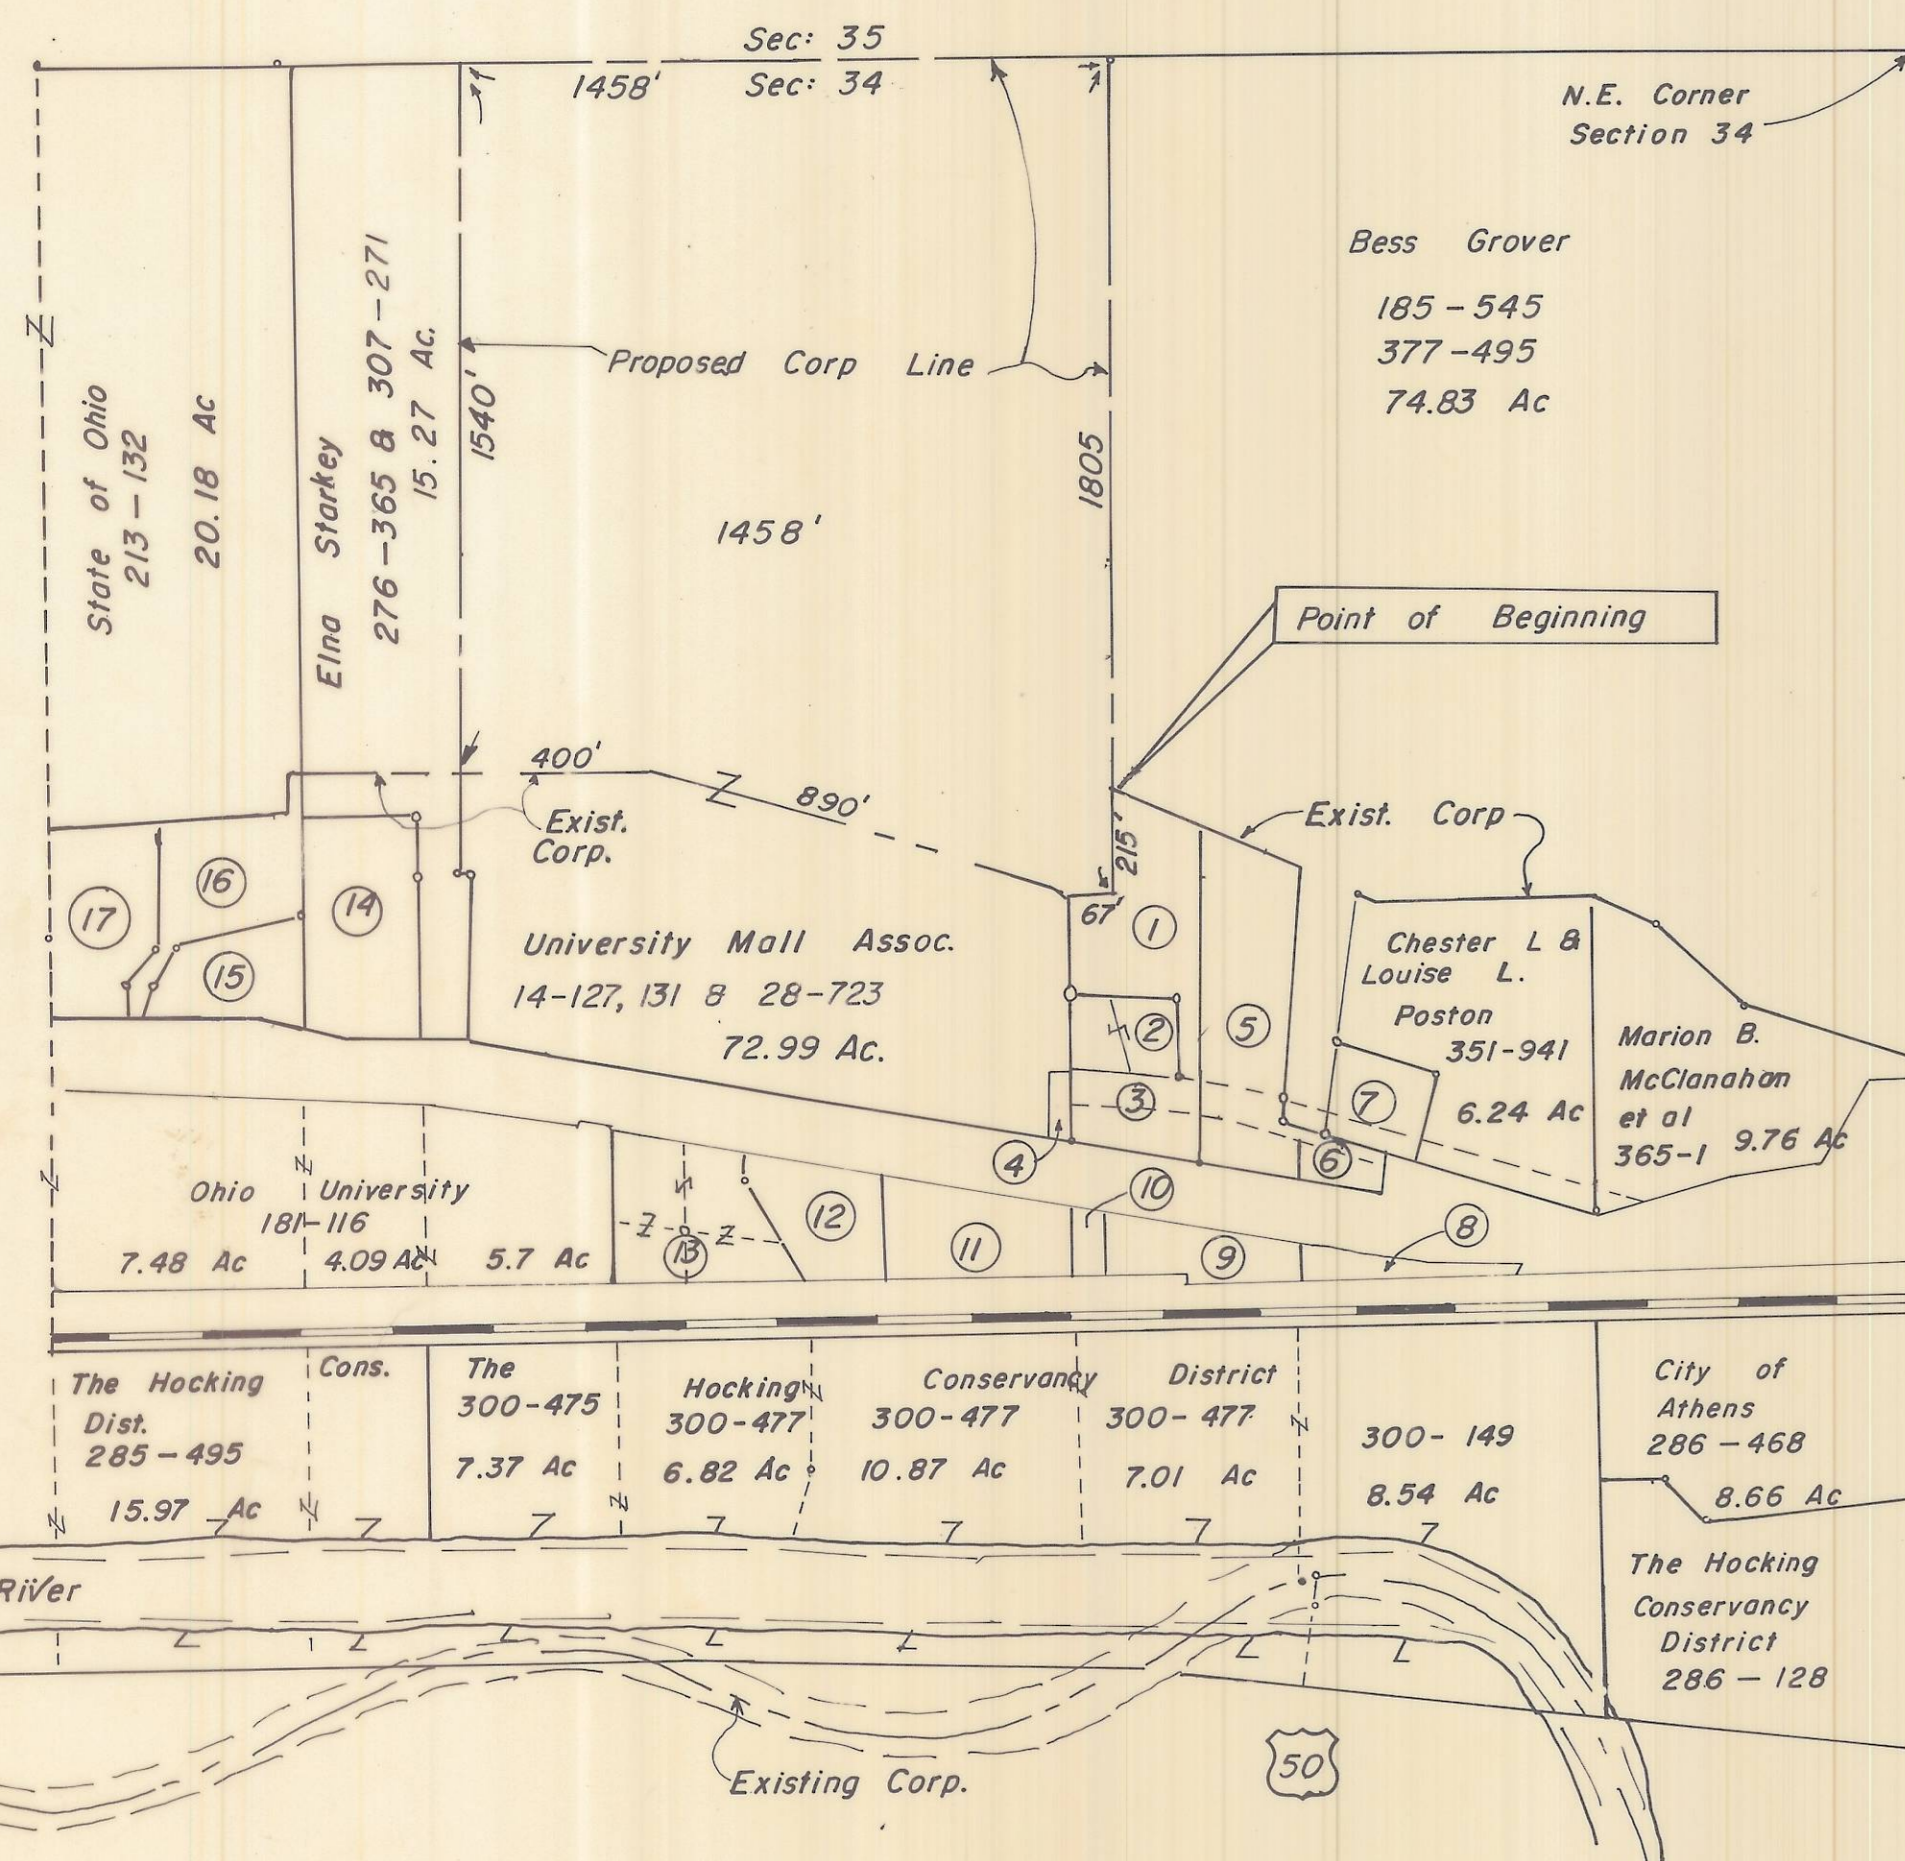 Sec: 35
1458' Sec: 34
N.E. Corner
Section 34
Bess Grover
185-545
377-495
74.83 Ac
State of Ohio
213-132
20.18 Ac
Elna Starkey
276-365 & 307-271
15.27 Ac.
1540'
Proposed Corp Line
1805
1458'
Point of Beginning
400'
890'
Exist.
Corp.
215'
67'
Exist. Corp
17
16
15
14
University Mall Assoc.
14-127, 131 & 28-723
72.99 Ac.
1
2
3
4
5
6
7
Chester L &
Louise L.
Poston
351-941
6.24 Ac
Marion B.
McClanahan
et al
365-1 9.76 Ac
Ohio University
181-116
7.48 Ac 4.09 Ac 5.7 Ac
13
12
11
10
9
8
The Hocking Cons.
Dist.
285-495
15.97 Ac
The Hocking Conservancy District
300-475
7.37 Ac
300-477
6.82 Ac
300-477
10.87 Ac
300-477
7.01 Ac
300-149
8.54 Ac
City of
Athens
286-468
8.66 Ac
The Hocking
Conservancy
District
286-128
River
Existing Corp.
50